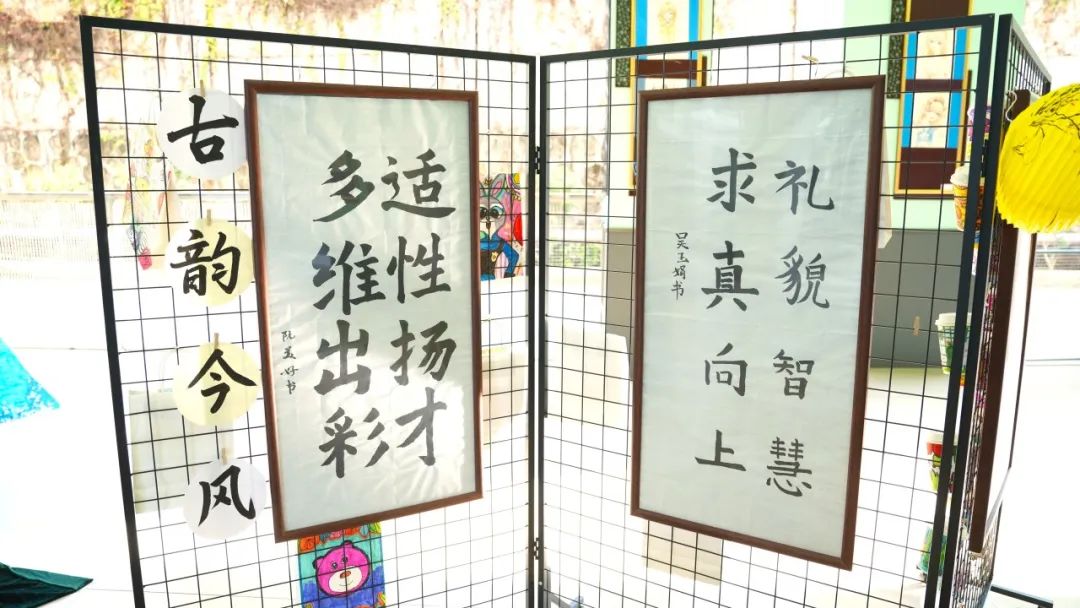 古韵今风
适性扬才
多维出彩
阮美好书
礼貌智慧
求真向上
吴玉娟书